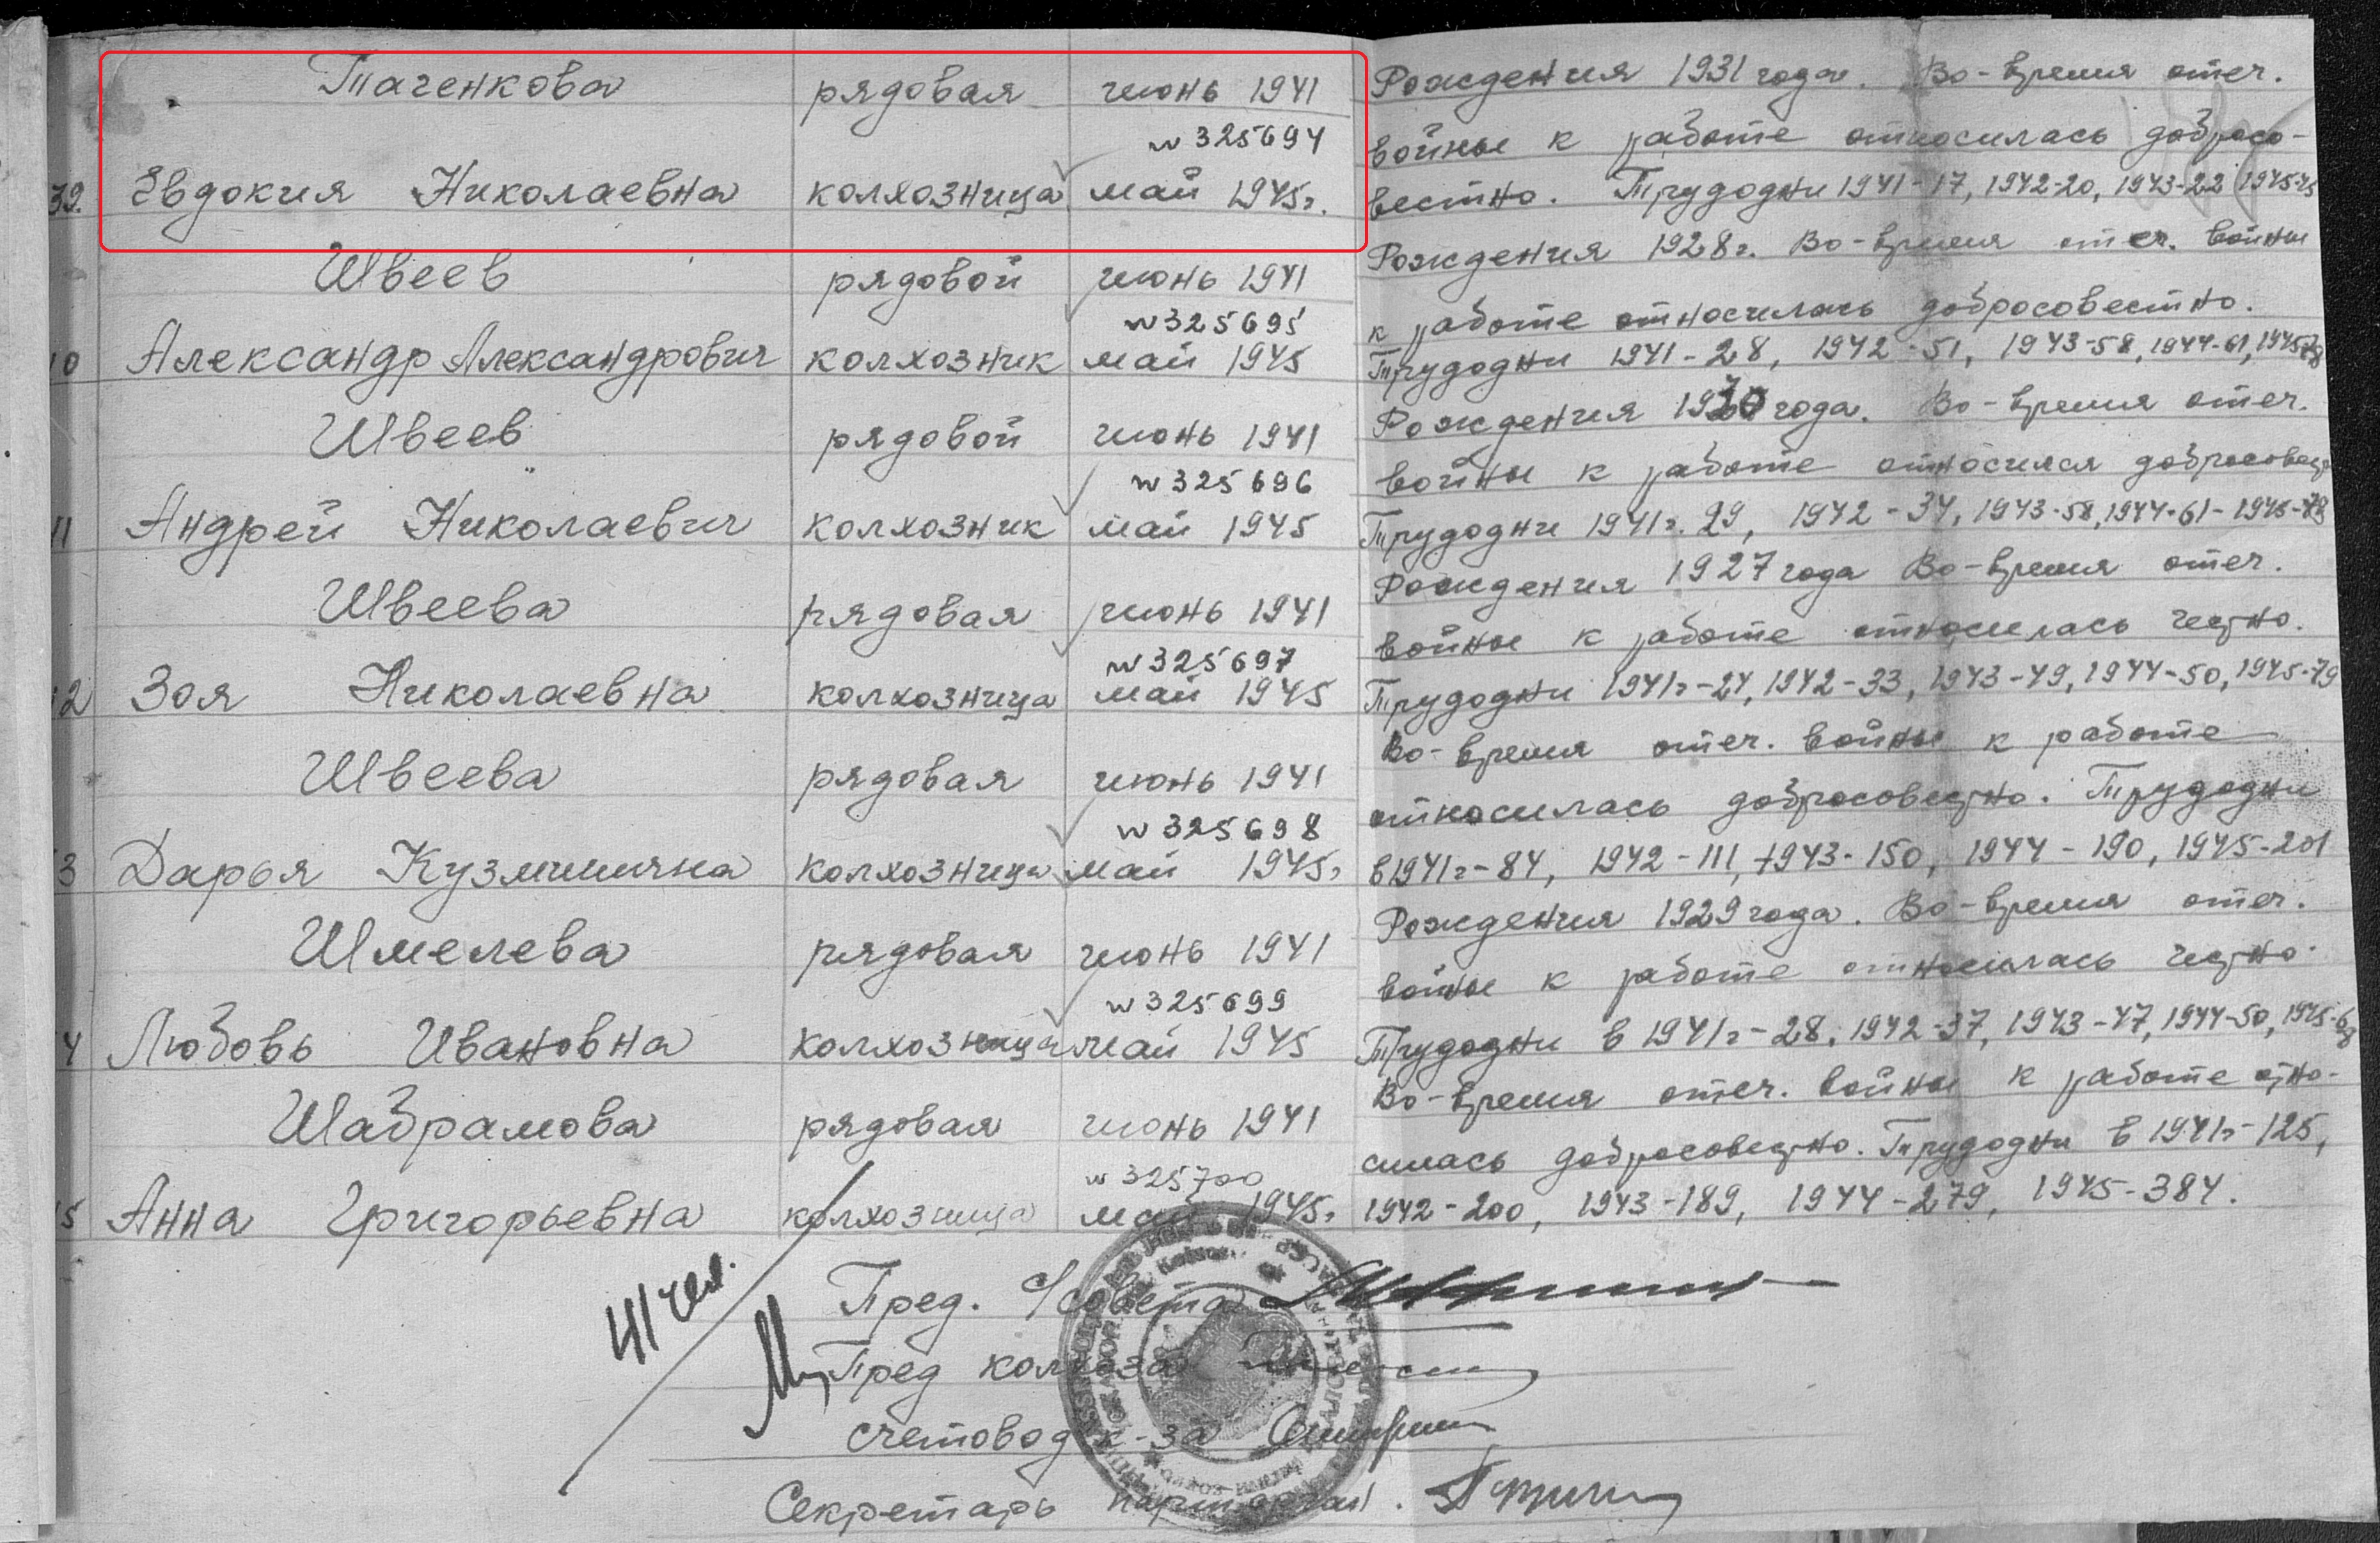 Таченкова рядовая июнь 1941 Рождения 1931 года. Во-время отеч.
№ 325694 войны к работе относилась добросо-
39. Евдокия Николаевна колхозница май 1945г. вестно. Трудодни 1941-17, 1942-20, 1943-22 1945-45
Швеев рядовой июнь 1941 Рождения 1928г. Во-время отеч. войны
№ 325695 к работе относилась добросовестно.
0 Александр Александрович колхозник май 1945 Трудодни 1941-28, 1942-51, 1943-58, 1944-61, 1945-78
Швеев рядовой июнь 1941 Рождения 1930 года. Во-время отеч.
№ 325696 войны к работе относился добросовест
11 Андрей Николаевич колхозник май 1945 Трудодни 1941г. 29, 1942-34, 1943-58, 1944-61-1945-78
Швеева рядовая июнь 1941 Рождения 1927 года Во-время отеч.
№ 325697 войны к работе относилась честно.
12 Зоя Николаевна колхозница май 1945 Трудодни 1941г-24, 1942-33, 1943-49, 1944-50, 1945-79
Швеева рядовая июнь 1941 Во-время отеч. войны к работе
№ 325698 относилась добросовестно. Трудодни
3 Дарья Кузминична колхозница май 1945г. в 1941г-84, 1942-111, 1943-150, 1944-190, 1945-201
Шмелева рядовая июнь 1941 Рождения 1929 года. Во-время отеч.
№ 325699 войны к работе относилась честно.
4 Любовь Ивановна колхозница май 1945 Трудодни в 1941г-28, 1942-37, 1943-47, 1944-50, 1945-68
Шабрамова рядовая июнь 1941 Во-время отеч. войны к работе отно-
№ 325700 силась добросовестно. Трудодни в 1941г-125,
5 Анна Григорьевна колхозница май 1945г. 1942-200, 1943-189, 1944-279, 1945-384.
41 чел.
Пред. с/совета
Пред колхоза
счетовод к-за
Секретарь парт орган.